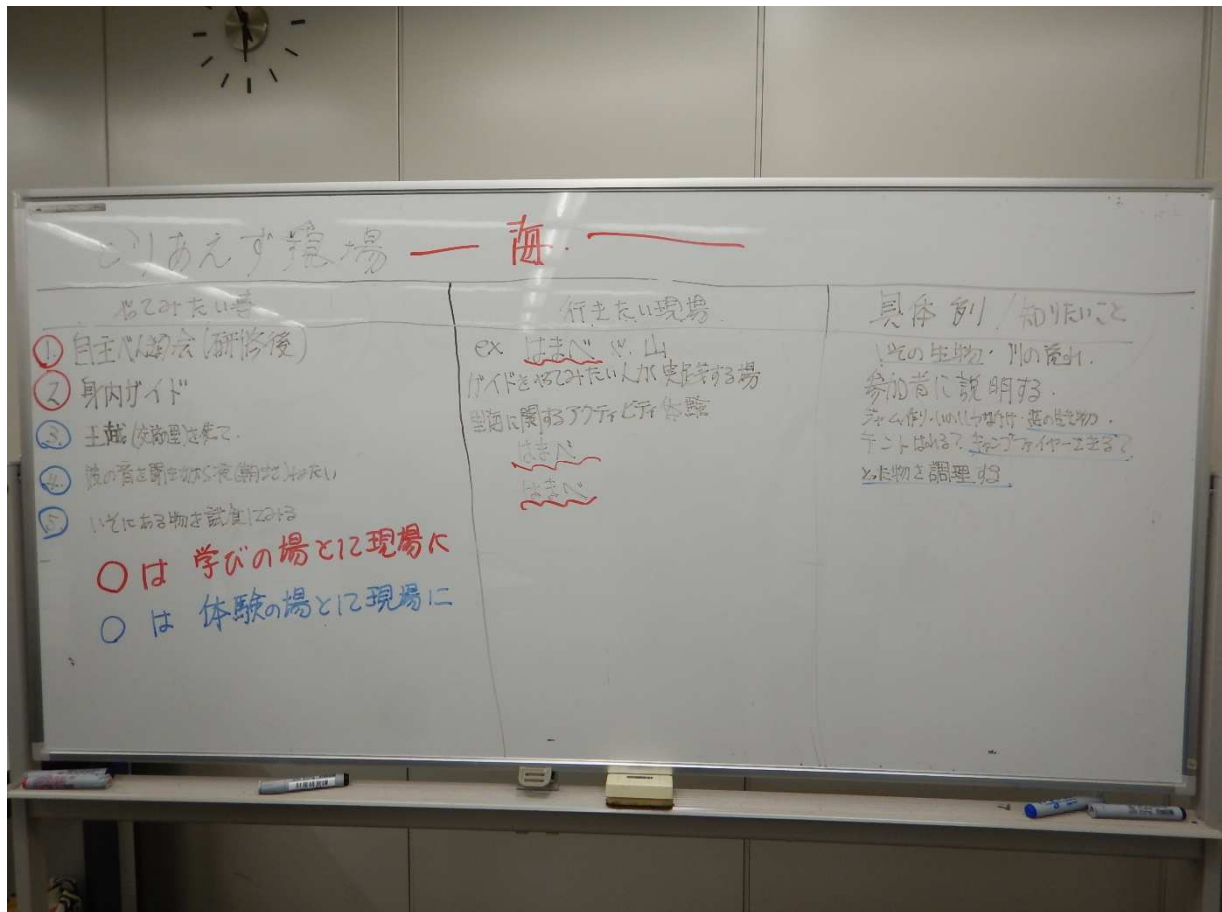 とりあえず現場 ー 海・ー
やってみたい事
① 自主べん強会(研修後)
② 身内ガイド
③ 王越(
④ 波の音を聞きながら夜(
⑤ いそにある物を試食してみる
○は 学びの場として現場に
○は 体験の場として現場に
行きたい現場
ex はまべ や 山
ガイドをやってみたい人が実践する場
里海に関するアクティビティ体験
はまべ
はまべ
具体例/知りたいこと
いその生物・川の流れ.
参加者に説明する.
ジャム作り・
テントはれるて キャンプファイヤーできるて
とった物を調理する